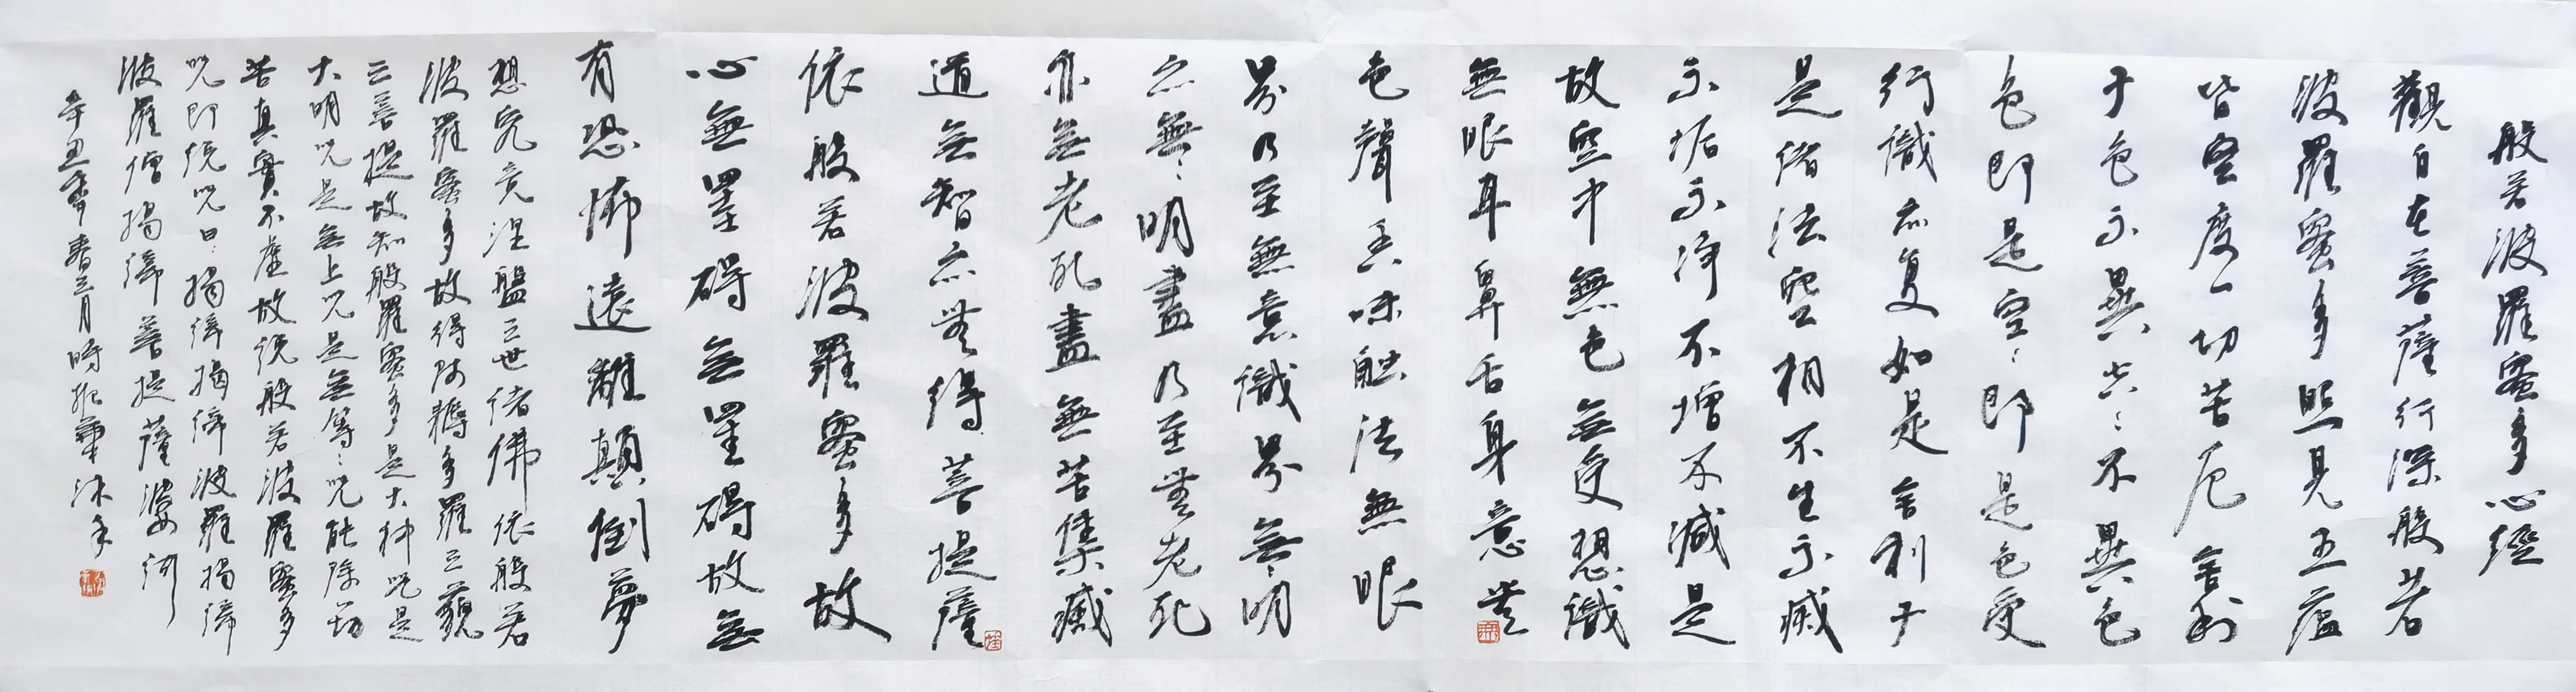 般若波羅蜜多心經
觀自在菩薩行深般若
波羅蜜多照見五蕴
皆空度一切苦厄舍利
子色不異空〻不異色
色即是空〻即是色受
行識亦复如是舍利子
是诸法空相不生不滅
不垢不净不增不減是
故空中無色無受想識
無眼耳鼻舌身意無
色聲香味触法無眼
界乃至無意識界無〻明
亦無〻明盡乃至無老死
亦無老死盡無苦集滅
道無智亦無得菩提薩
依般若波羅蜜多故
心無罣碍無罣碍故無
有恐怖遠離顛倒夢
想究竟涅盤三世诸佛依般若
波羅蜜多故得阿耨多羅三藐
三菩提故知般羅蜜多是大神咒是
大明咒是無上咒是無等〻咒能除一切
苦真實不虛故说般若波羅蜜多
咒即说咒曰揭谛揭谛波羅揭谛
波羅僧揭谛菩提薩婆訶
辛丑季春三月時沐手